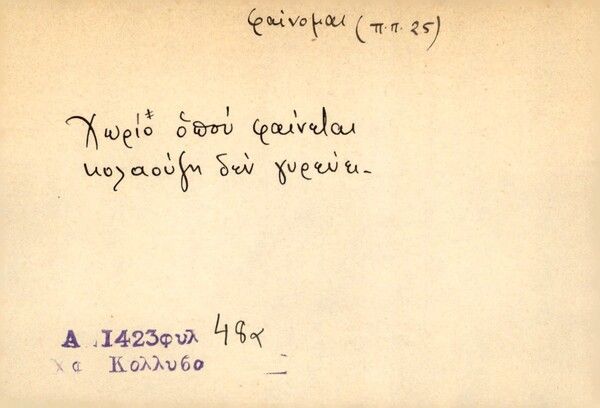 φαίνομαι (π.π. 25)
Χωριό* ὁπού φαίνεται
κολαούζη δέν γυρεύει-
Α .1423φυλ 48α
χφ Κολλυβα